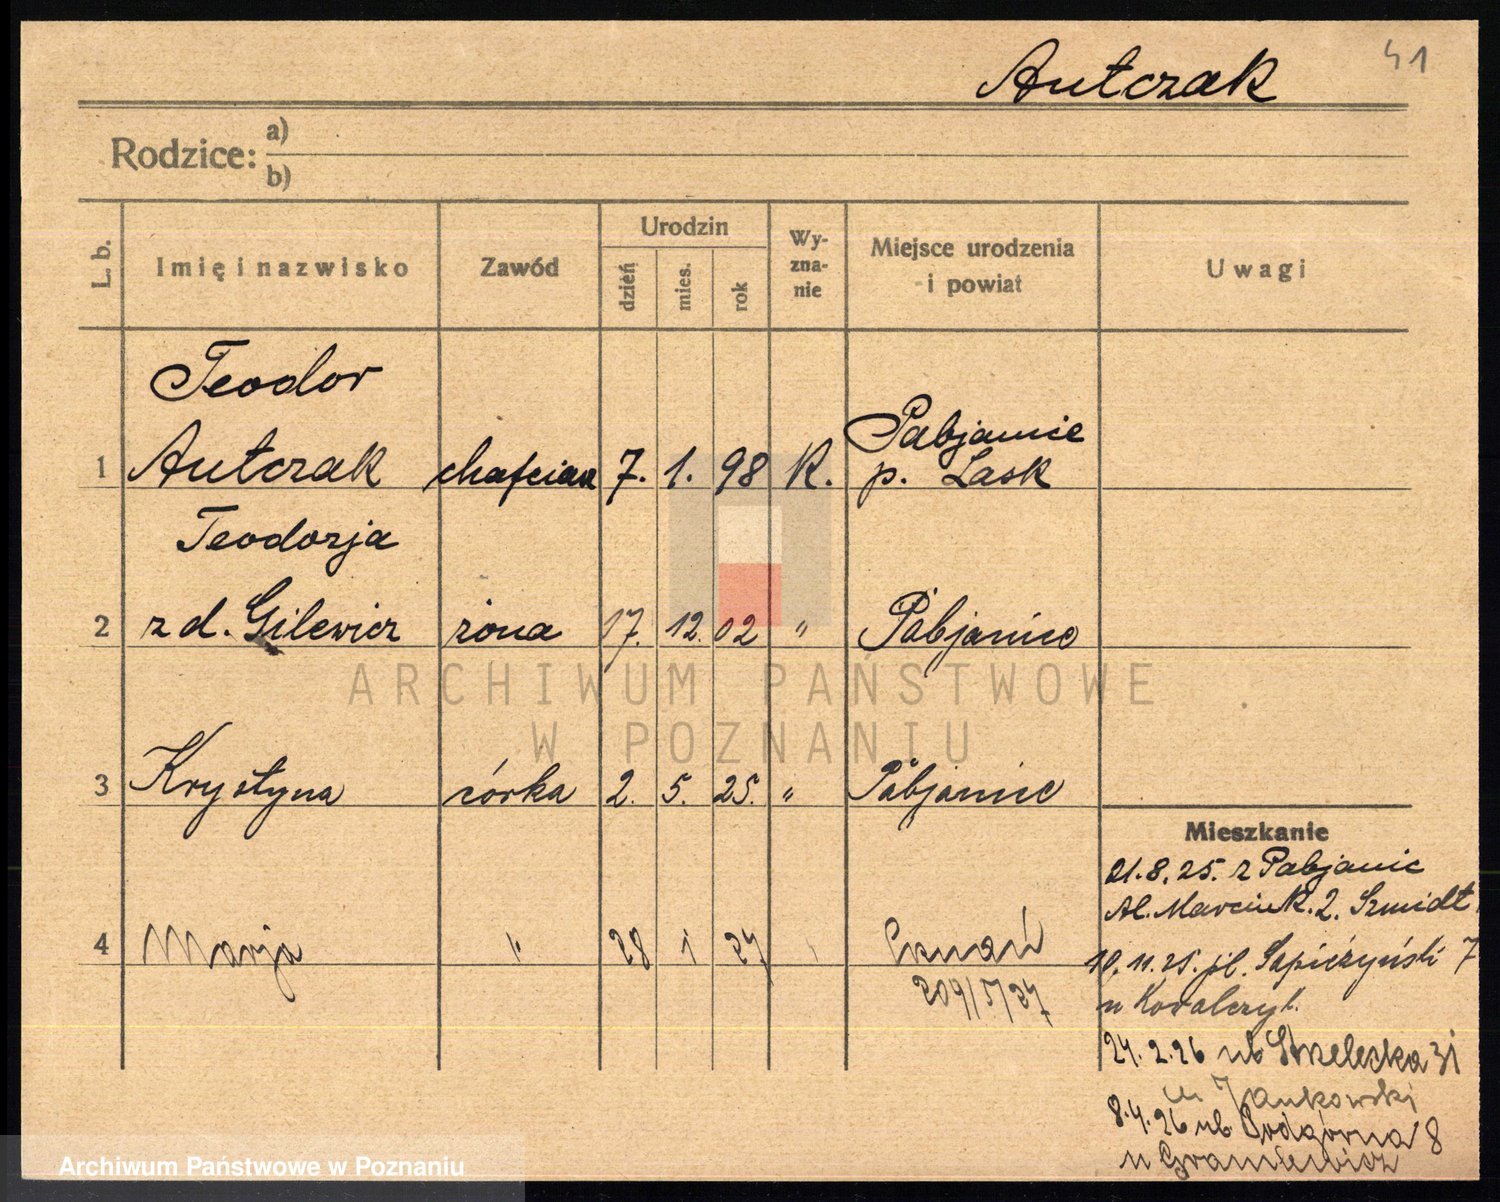 41
Antczak
Rodzice: a)
b)
L. b.
Imię i nazwisko
Zawód
Urodzin
dzień
mies.
rok
Wy-
zna-
nie
Miejsce urodzenia
i powiat
Uwagi
Teodor
1 Antczak 7. 1. 98 K. Pabjanice
p. Łask
Teodozja
2 z d. Gilewicz żona 17. 12. 02 " Pabjanice
3 Krystyna córka 2. 5. 25. " Pabjanice
4 Marja " 28 1 27 Poznań
209/5/27
Mieszkanie
21.8.25. z Pabjanic
Al. Marcink. 2. Szmidt
10.11.25. pl. Sapieżyński 7
u Kowalczyk.
24.2.26 ul. Strzelecka 31
u Jankowski
8.4.26 ul. Podgórna 8
u Graniewicz
ARCHIWUM PAŃSTWOWE
W POZNANIU
Archiwum Państwowe w Poznaniu